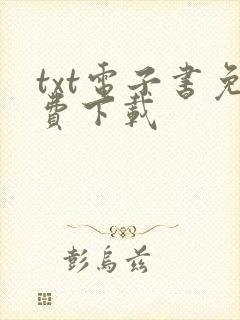 txt电子書免
費下載
彭烏茲